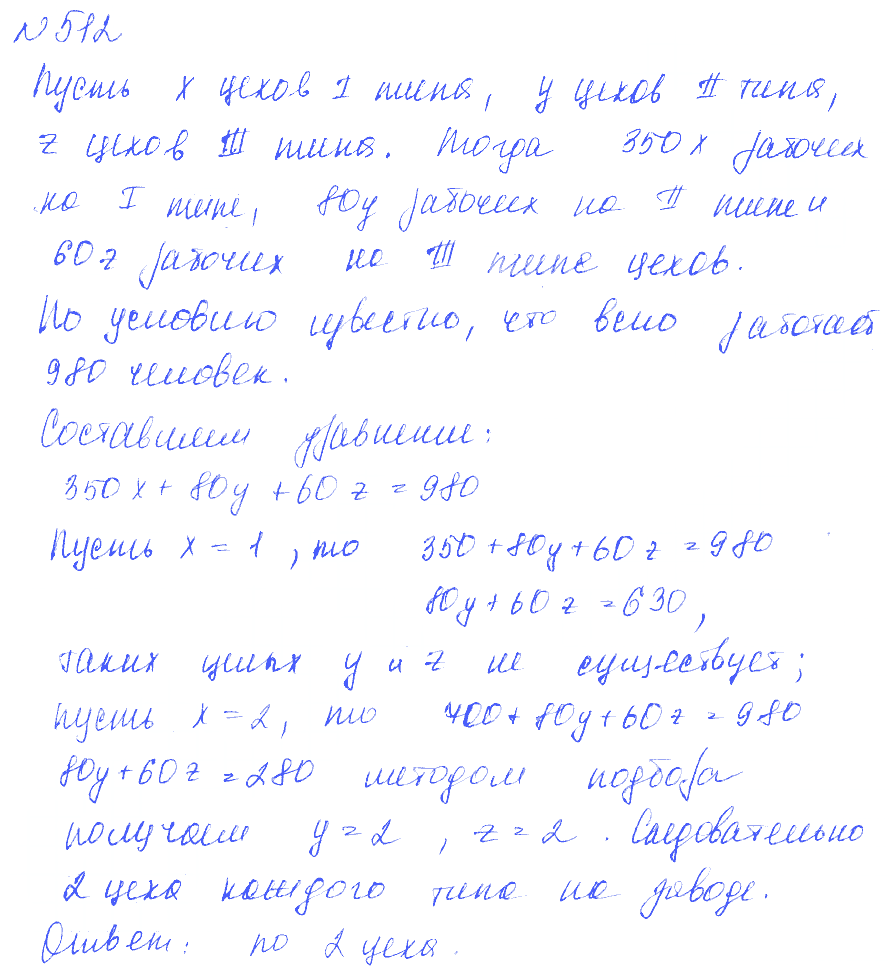 N512
Пусть x цехов I типа, y цехов II типа,
z цехов III типа. Тогда 350x рабочих
на I типе, 80y рабочих на II типе и
60z рабочих на III типе цехов.
По условию известно, что всего работает
980 человек.
Составляем уравнение:
350x + 80y + 60z = 980
Пусть x = 1, то 350 + 80y + 60z = 980
80y + 60z = 630,
таких целых y и z не существует;
пусть x = 2, то 700 + 80y + 60z = 980
80y + 60z = 280 методом подбора
получаем y = 2, z = 2. Следовательно
2 цеха каждого типа на заводе.
Ответ: по 2 цеха.